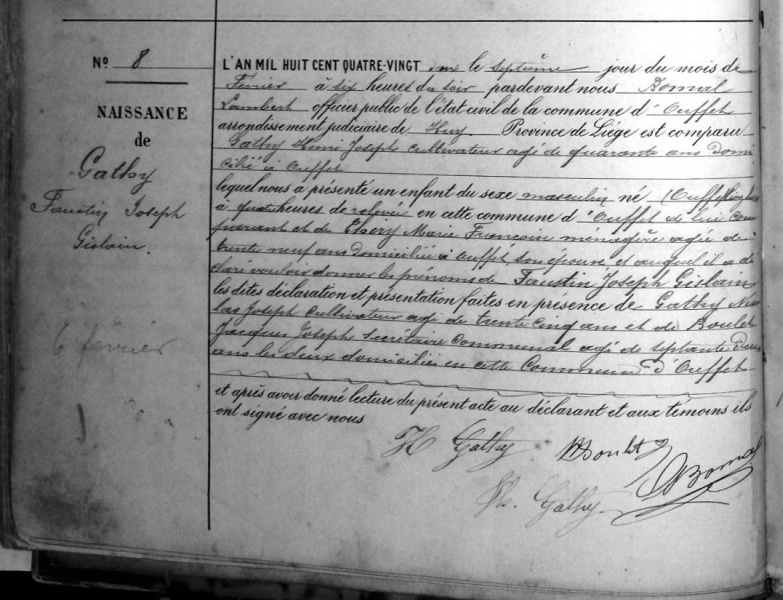 Nº 8
NAISSANCE
de
Gathy
Faustin Joseph
Gislain.
6 février
L'AN MIL HUIT CENT QUATRE-VINGT un le septième jour du mois de
Février à six heures du soir pardevant nous Bonmal
Lambert officier public de l'état civil de la commune d'Ouffet
arrondissement judiciaire de Huy Province de Liége est comparu
Gathy Henri Joseph cultivateur agé de quarante ans domi
cilié à Ouffet
lequel nous a présenté un enfant du sexe masculin né
à quatre heures de relevée en cette commune d'Ouffet de lui Com
parant et de Marie Françoise ménagère agée de
trente neuf ans domiciliée à Ouffet son épouse et auquel il a dé
claré vouloir donner les prénoms de Faustin Joseph Gislain
les dites déclaration et présentation faites en présence de Gathy Nico
las Joseph cultivateur agé de trente cinq ans et de Boulet
Jacques Joseph secrétaire communal agé de septante deux
ans les deux domiciliés en cette Commune d'Ouffet
et après avoir donné lecture du présent acte au déclarant et aux témoins ils
ont signé avec nous
H Gathy Boulet
N. Gathy Bonmal